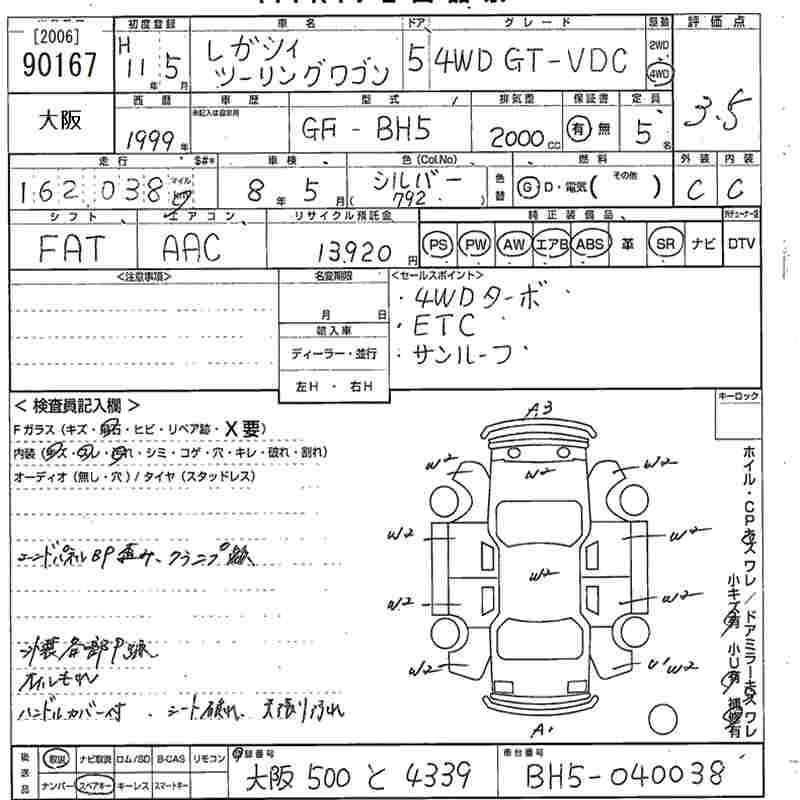 [2006]
90167
初度登録 車名 ドア グレード 駆動 評価点
H 11年 5月 レガシィ ツーリングワゴン 5 4WD GT-VDC 2WD 4WD
大阪
西暦 車歴 型式 排気量 保証書 定員
未記入は自家用
1999年 GF-BH5 2000cc 有 無 5名 3.5
走行 $#* 車検 色(Col.No) 燃料 外装 内装
162,038 マイル km 8年 5月 シルバー (792) 色替 G D・電気 (その他) C C
シフト エアコン リサイクル預託金 純正装備品
FAT AAC 13,920円 PS PW AW エアB ABS 革 SR ナビ DTV
<注意事項> 名変期限 <セールスポイント>
月 日
・4WDターボ
・ETC
・サンルーフ
輸入車
ディーラー・並行
左H・右H
キーロック
<検査員記入欄>
Fガラス(キズ・飛石・ヒビ・リペア跡・X要)
内装(キズ・スレ・汚れ・シミ・コゲ・穴・キレ・破れ・割れ)
オーディオ(無し・穴)/タイヤ(スタッドレス)
エンドパネルBP歪み、クランプ跡
外装各部P跡
オイルもれ
ハンドルカバー付、シート破れ、天張り汚れ
A3
W2 W2 W2
W2 W2
W2
W2 W2
W2 U1 W2
A1
ホイル・CPキズワレ/ドアミラーキズワレ
小キズ有 小U有 補修有
後送品 取説 ナビ取説 ロム/SD B-CAS リモコン
ナンバー スペアキー キーレス スマートキー
登録番号 車台番号
大阪 500 と 4339 BH5-040038